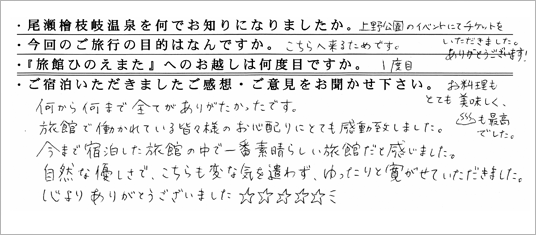 ・尾瀬檜枝岐温泉を何でお知りになりましたか。上野公園のイベントにてチケットを
いただきました。
ありがとうございます!
・今回のご旅行の目的はなんですか。こちらへ来るためです。
・『旅館ひのえまた』へのお越しは何度目ですか。1度目
・ご宿泊いただきましたご感想・ご意見をお聞かせ下さい。
お料理も
とても美味しく、
♨も最高
でした。
何から何まで全てがありがたかったです。
旅館で働かれている皆々様のお心配りにとても感動致しました。
今まで宿泊した旅館の中で一番素晴らしい旅館だと感じました。
自然な優しさで、こちらも変な気を遣わず、ゆったりと寛がせていただきました。
心よりありがとうございました☆☆☆☆☆ミ